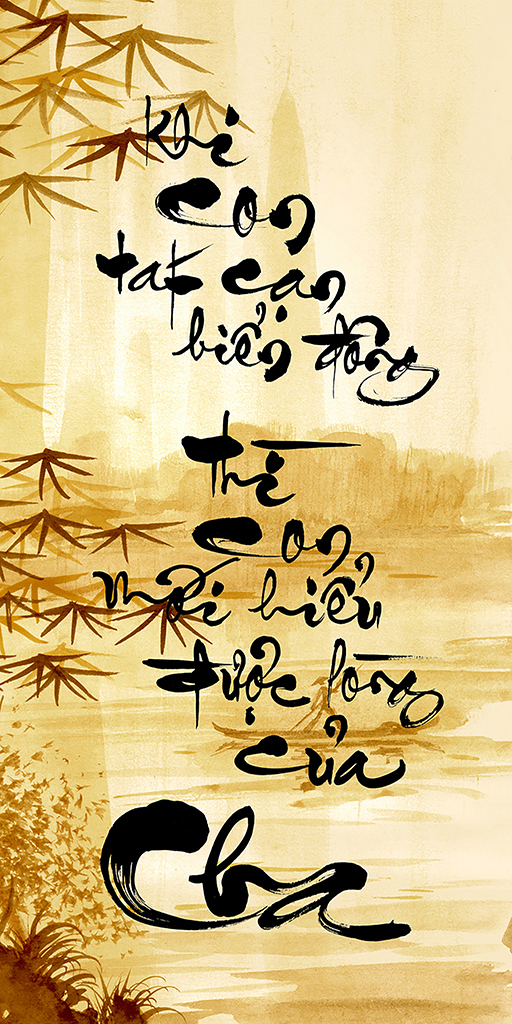 Khi
Con
tát cạn
biển đông
thì
Con
mới hiểu
được lòng
của
Cha